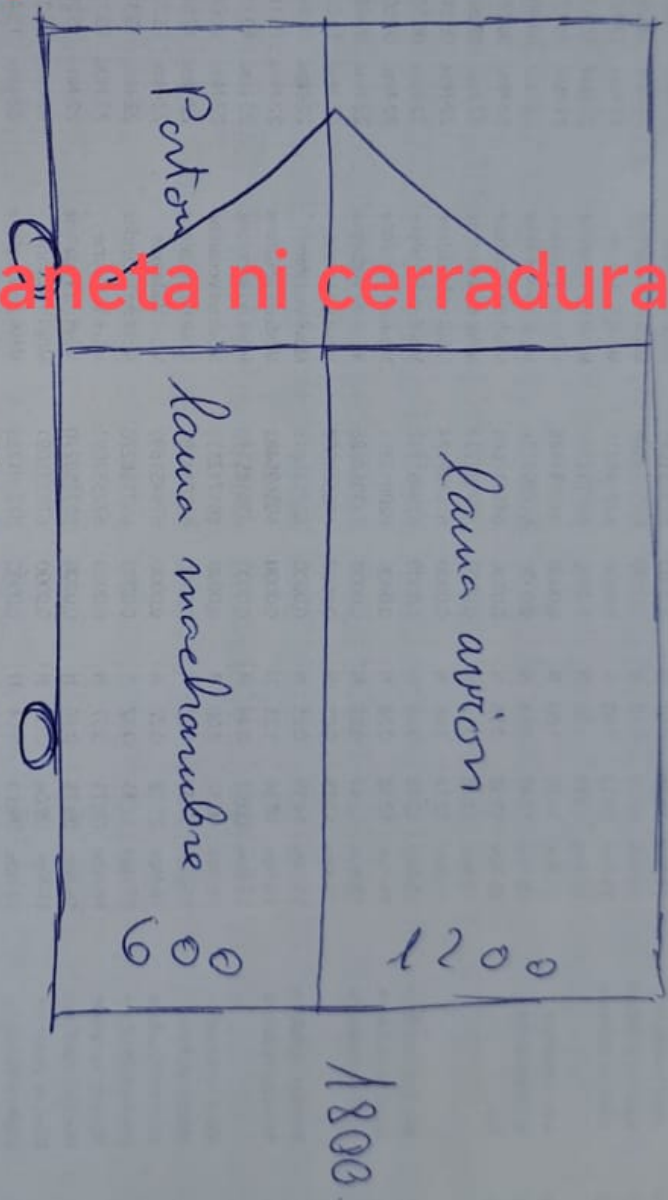 Porton
aneta ni cerradura
lama avion
lama machambre
1200
600
1800